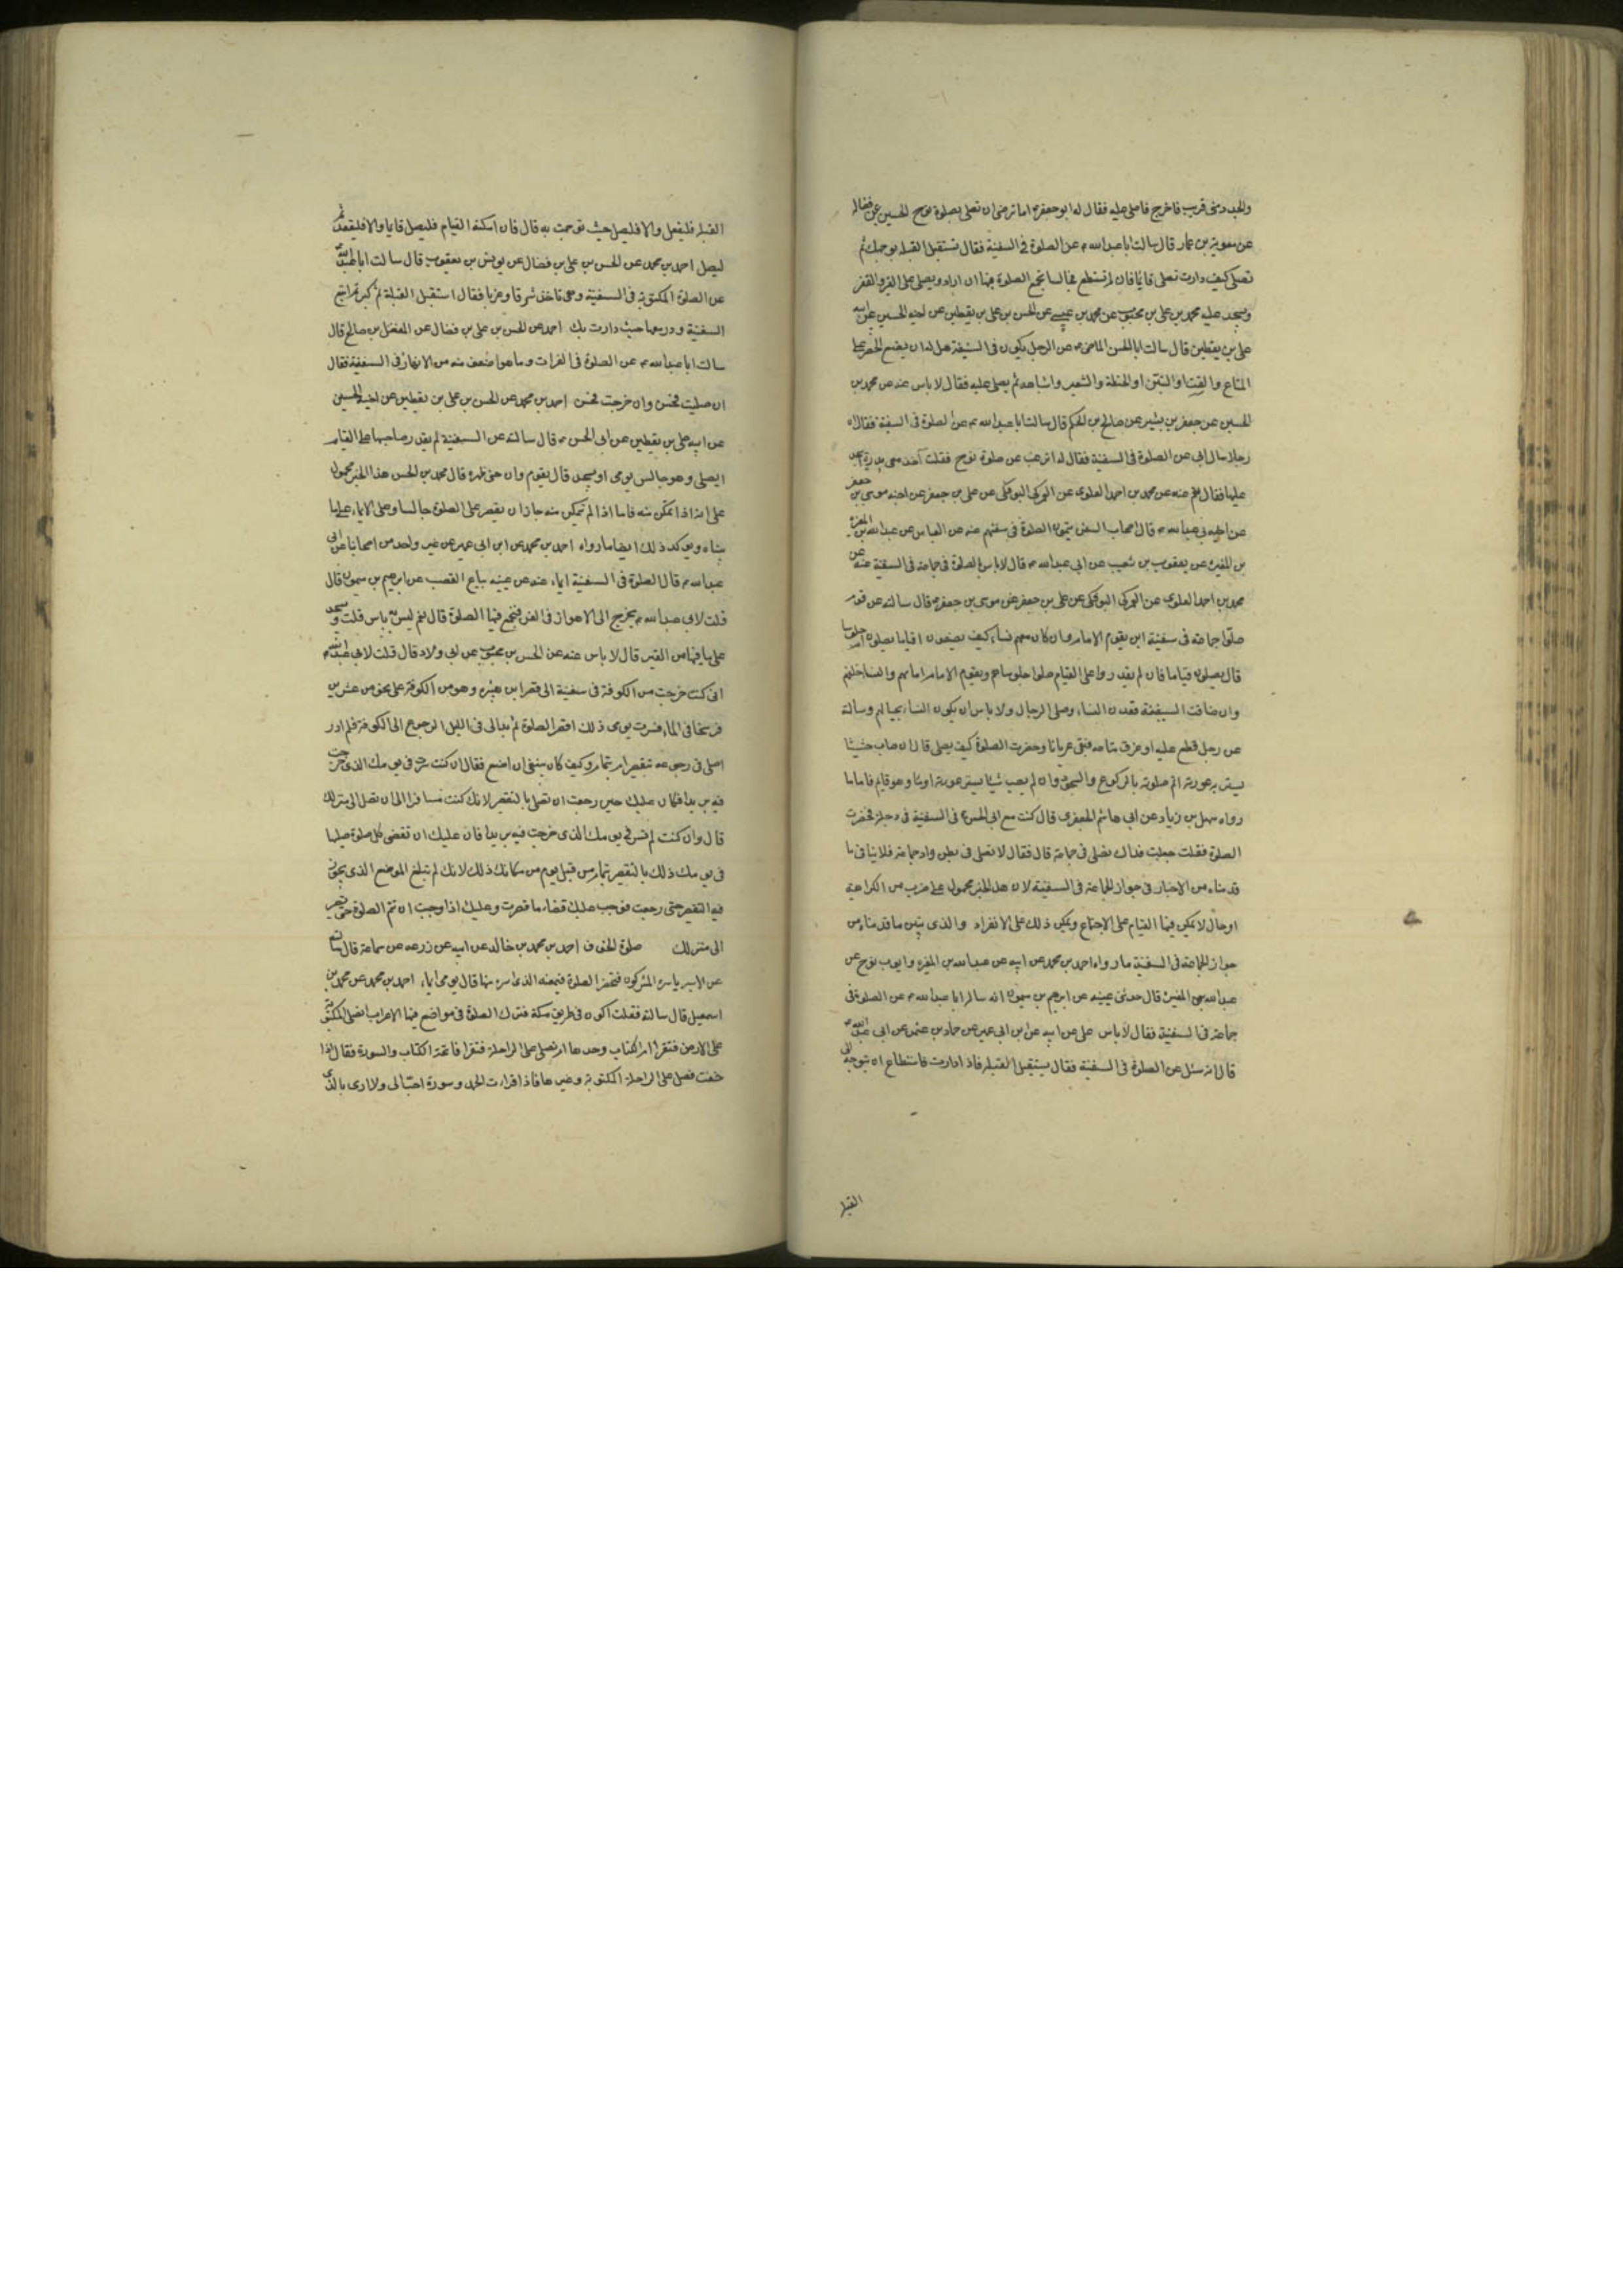 والجد دمنى قريب فاخرج فاصلى عليه فقال له ابو جعفر ع اما ترضى ان تصلى بصلوة نوح الحسين عن فضالة
عن معوية بن عمار قال سالت ابا عبد الله ع عن الصلوة فى السفينة فقال تستقبل القبلة بوجهك ثم
تصلى كيف دارت تصلى قائما فان لم تستطع فجالسا يجمع الصلوة فيها ان اراد ويصلى على القير والقفر
ويسجد عليه محمد بن على بن محبوب عن محمد بن عيسى عن الحسن بن على بن يقطين عن اخيه الحسين عن ابيه
على بن يقطين قال سالت ابا الحسن الماضى ع عن الرجل يكون فى السفينة هل له ان يضع الحصر على
المتاع والقت والتبن او الحنطة والشعير واشباهه ثم يصلى عليه فقال لا باس عنه عن محمد بن
الحسين عن جعفر بن بشير عن صالح بن الحكم قال سالت ابا عبد الله ع عن الصلوة فى السفينة فقال ان
رجلا سال ابى عن الصلوة فى السفينة فقال له اترغب عن صلوة نوح فقلت آخذ معى مدرة اسجد
عليها فقال نعم عنه عن محمد بن احمد العلوى عن العمركى البوفكى عن على بن جعفر عن اخيه موسى بن جعفر
عن ابيه ابى عبد الله ع قال اصحاب السفن يتمون الصلوة فى سفنهم عنه عن العباس عن عبد الله بن المغيرة
بن المغيرة عن يعقوب بن شعيب عن ابى عبد الله ع قال لا باس بالصلوة فى جماعة فى السفينة عنه عن
محمد بن احمد العلوى عن العمركى البوفكى عن على بن جعفر عن موسى بن جعفر ع قال سالته عن قوم
صلوا جماعة فى سفينة اين يقوم الامام وان كان معهم نساء كيف يصنعون اقياما يصلون ام جلوسا
قال يصلون قياما فان لم يقدروا على القيام صلوا جلوسا هم ويقوم الامام امامهم والنساء خلفهم
وان ضاقت السفينة قعدن النساء وصلى الرجال ولا باس ان يكون النساء بحيالهم وسالته
عن رجل قطع عليه او غرق متاعه فبقى عريانا وحضرت الصلوة كيف يصلى قال ان صاب حشيشا
يستر به عورته اتم صلوته بالركوع والسجود وان لم يصب شيئا يستر عورته اومأ وهو قايم فاما ما
رواه سهل بن زياد عن ابى هاشم الجعفرى قال كنت مع ابى الحسن ع فى السفينة فى دجلة فحضرت
الصلوة فقلت جعلت فداك نصلى فى جماعة قال فقال لا نصلى فى بطن واد جماعة فلا ينافى ما
قدمناه من الاخبار فى جواز الجماعة فى السفينة لان هذا الخبر محمول على ضرب من الكراهية
او حال لا يمكن فيها القيام على الاجتماع ويمكن ذلك على الانفراد والذى يبين ما قدمناه من
جواز الجماعة فى السفينة ما رواه احمد بن محمد عن ابيه عن عبد الله بن المغيرة وايوب نوح عن
عبد الله بن المغيرة قال حدثنى عيينه عن ابرهيم بن ميمون انه سال ابا عبد الله ع عن الصلوة فى
جماعة فى السفينة فقال لا باس على عن ابيه عن ابن ابى عمير عن حماد بن عثمن عن ابى عبد الله ع
قال انه سئل عن الصلوة فى السفينة فقال يستقبل القبلة فاذا دارت فاستطاع ان يتوجه الى
القبلة
القبلة فليفعل والا فليصل حيث توجهت به قال فان امكنه القيام فليصل قايما والا فليقعد ثم
ليصل احمد بن محمد عن الحسن بن على بن فضال عن يونس بن يعقوب قال سالت ابا عبد الله ع
عن الصلوة المكتوبة فى السفينة وهى تاخذ شرقا وغربا فقال استقبل القبلة ثم كبر ثم اتبع
السفينة ودر معها حيث دارت بك احمد عن الحسن بن على بن فضال عن المفضل بن صالح قال
سالت ابا عبد الله ع عن الصلوة فى الفرات وما هو اضعف منه من الانهار فى السفينة فقال
ان صليت فحسن وان خرجت فحسن احمد بن محمد عن الحسن بن على بن يقطين عن اخيه الحسين
عن ابيه على بن يقطين عن ابى الحسن ع قال سالته عن السفينة لم يقدر صاحبها على القيام
ايصلى وهو جالس يومى او يسجد قال يقوم وان حنى ظهره قال محمد بن الحسن هذا الخبر محمول
على انه اذا تمكن منه فاما اذا لم يتمكن منه جاز ان يقتصر على الصلوة جالسا وعلى الايماء على ما
بيناه ويوكد ذلك ايضا ما رواه احمد بن محمد عن ابن ابى عمير عن غير واحد من اصحابنا عن ابى
عبد الله ع قال الصلوة فى السفينة ايماء عنه عن عيينه بياع القصب عن ابرهيم بن ميمون قال
قلت لابى عبد الله ع يخرج الى الاهواز فى السفن فنجمع فيها الصلوة قال نعم ليس به باس قلت ونسجد
على ما فيها من القير قال لا باس عنه عن الحسن بن محبوب عن ابى ولاد قال قلت لابى عبد الله ع
انى كنت خرجت من الكوفة فى سفينة الى قصر ابن هبيره وهو من الكوفة على نحو من عشرين
فرسخا فى الماء فسرت يومى ذلك اقصر الصلوة ثم بدا لى فى الليل الرجوع الى الكوفة فلم ادر
اصلى فى رجوعى بتقصير ام بتمام وكيف كان ينبغى ان اصنع فقال ان كنت سرت فى يومك الذى خرجت
فيه بريدا فكان عليك حين رجعت ان تصلى بالتقصير لانك كنت مسافرا الى ان تصل الى منزلك
قال وان كنت لم تسر فى يومك الذى خرجت فيه بريدا فان عليك ان تقضى كل صلوة صليتها
فى يومك ذلك بالتقصير بتمام من قبل يوم من مكانك ذلك لانك لم تبلغ الموضع الذى يجوز
فيه التقصير حتى رجعت فوجب عليك قضاء ما قصرت وعليك اذا وجبت ان تتم الصلوة حتى تصير
الى منزلك صلوة الخوف احمد بن محمد بن خالد عن ابيه عن زرعه عن سماعة قال سالته
عن الاسير ياسره المشركون فتحضر الصلوة فيمنعه الذى اسره منها قال يومى ايماء احمد بن محمد عن محمد بن
اسمعيل قال سالته فقلت اكون فى طريق مكة فننزل الصلوة فى مواضع فيها الاعراب انصلى المكتوبة
على الارض فنقرا ام الكتاب وحدها ام نصلى على الراحلة فنقرا فاتحة الكتاب والسورة فقال اذا
خفت فصل على الراحلة المكتوبة وغيرها فاذا قرات الحمد وسورة احب الى ولا ارى بالذى